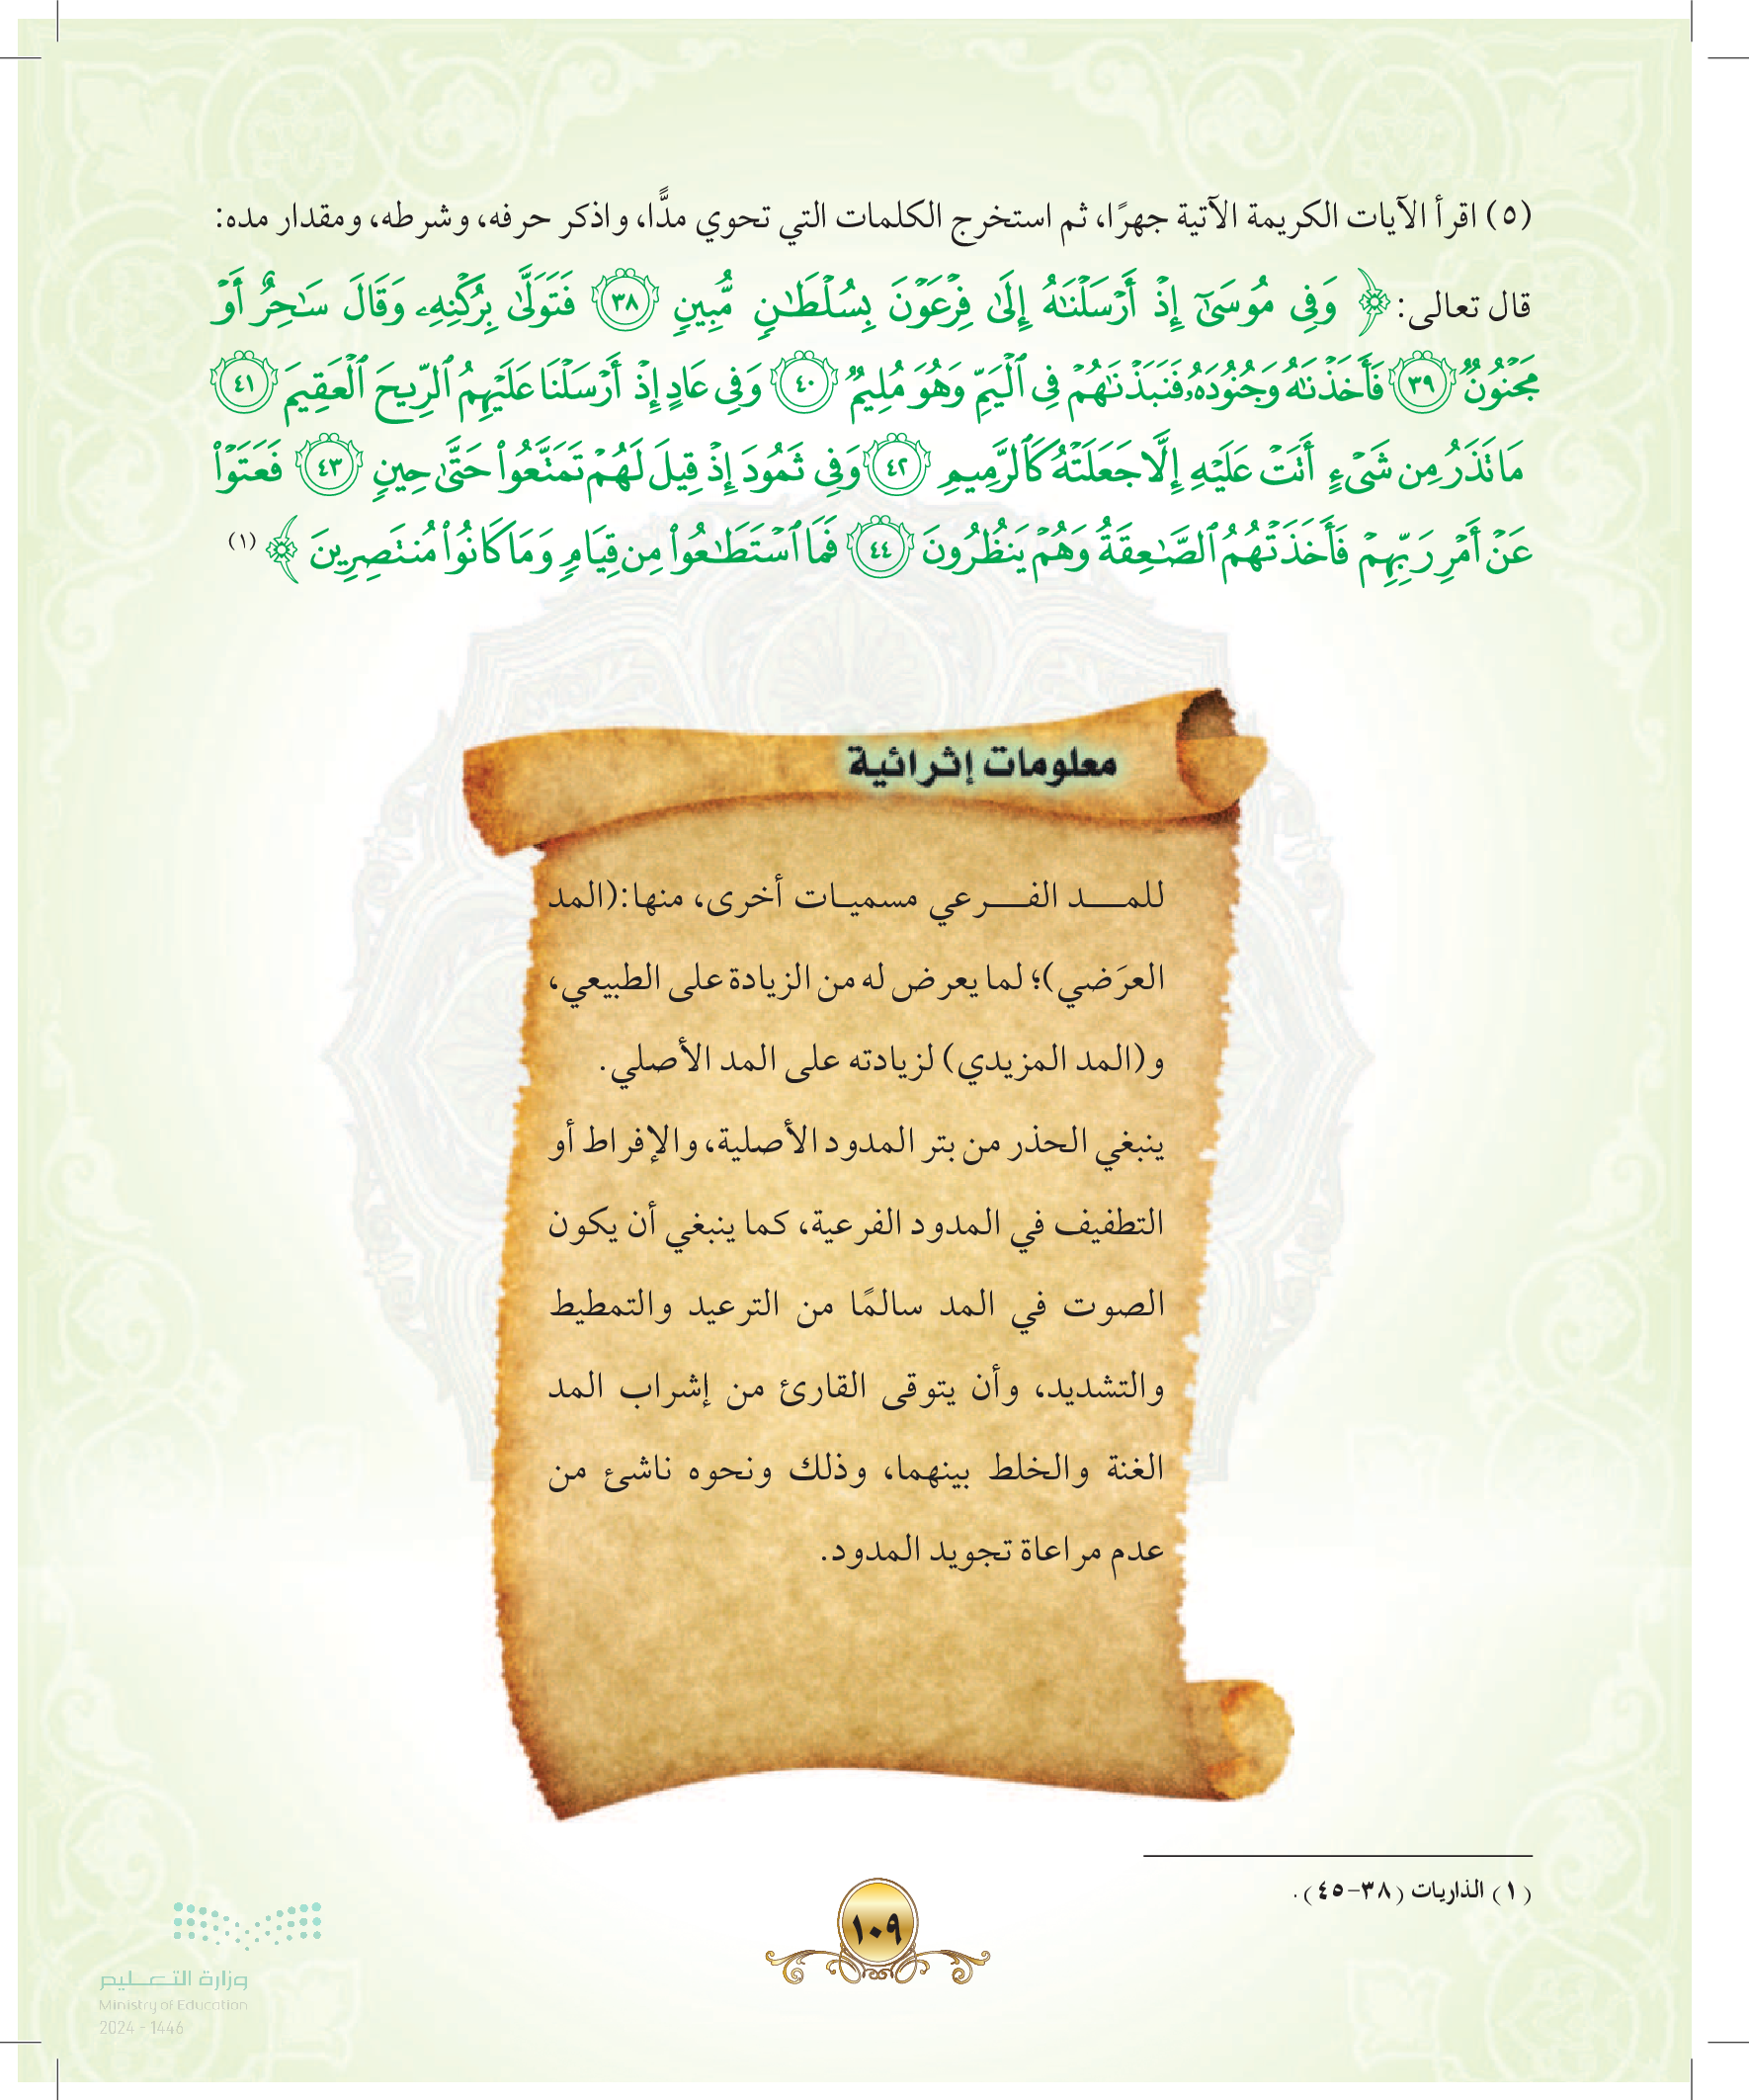 (٥) اقرأ الآيات الكريمة الآتية جهرًا، ثم استخرج الكلمات التي تحوي مدًّا، واذكر حرفه، وشرطه، ومقدار مده:
قال تعالى: ﴿ وَفِي مُوسَىٰٓ إِذۡ أَرۡسَلۡنَٰهُ إِلَىٰ فِرۡعَوۡنَ بِسُلۡطَٰنٖ مُّبِينٖ ٣٨ فَتَوَلَّىٰ بِرُكۡنِهِۦ وَقَالَ سَٰحِرٌ أَوۡ
مَجۡنُونٞ ٣٩ فَأَخَذۡنَٰهُ وَجُنُودَهُۥ فَنَبَذۡنَٰهُمۡ فِي ٱلۡيَمِّ وَهُوَ مُلِيمٞ ٤٠ وَفِي عَادٍ إِذۡ أَرۡسَلۡنَا عَلَيۡهِمُ ٱلرِّيحَ ٱلۡعَقِيمَ ٤١
مَا تَذَرُ مِن شَيۡءٍ أَتَتۡ عَلَيۡهِ إِلَّا جَعَلَتۡهُ كَٱلرَّمِيمِ ٤٢ وَفِي ثَمُودَ إِذۡ قِيلَ لَهُمۡ تَمَتَّعُواْ حَتَّىٰ حِينٖ ٤٣ فَعَتَوۡاْ
عَنۡ أَمۡرِ رَبِّهِمۡ فَأَخَذَتۡهُمُ ٱلصَّٰعِقَةُ وَهُمۡ يَنظُرُونَ ٤٤ فَمَا ٱسۡتَطَٰعُواْ مِن قِيَامٖ وَمَا كَانُواْ مُنتَصِرِينَ ﴾ (١)
معلومات إثرائية
للمــد الفــرعي مسميـات أخرى، منها: (المد
العرَضي)؛ لما يعرض له من الزيادة على الطبيعي،
و(المد المزيدي) لزيادته على المد الأصلي.
ينبغي الحذر من بتر المدود الأصلية، والإفراط أو
التطفيف في المدود الفرعية، كما ينبغي أن يكون
الصوت في المد سالمًا من الترعيد والتمطيط
والتشديد، وأن يتوقى القارئ من إشراب المد
الغنة والخلط بينهما، وذلك ونحوه ناشئ من
عدم مراعاة تجويد المدود.
(١) الذاريات (٣٨-٤٥).
١٠٩
وزارة التعـليم
Ministry of Education
2024 - 1446